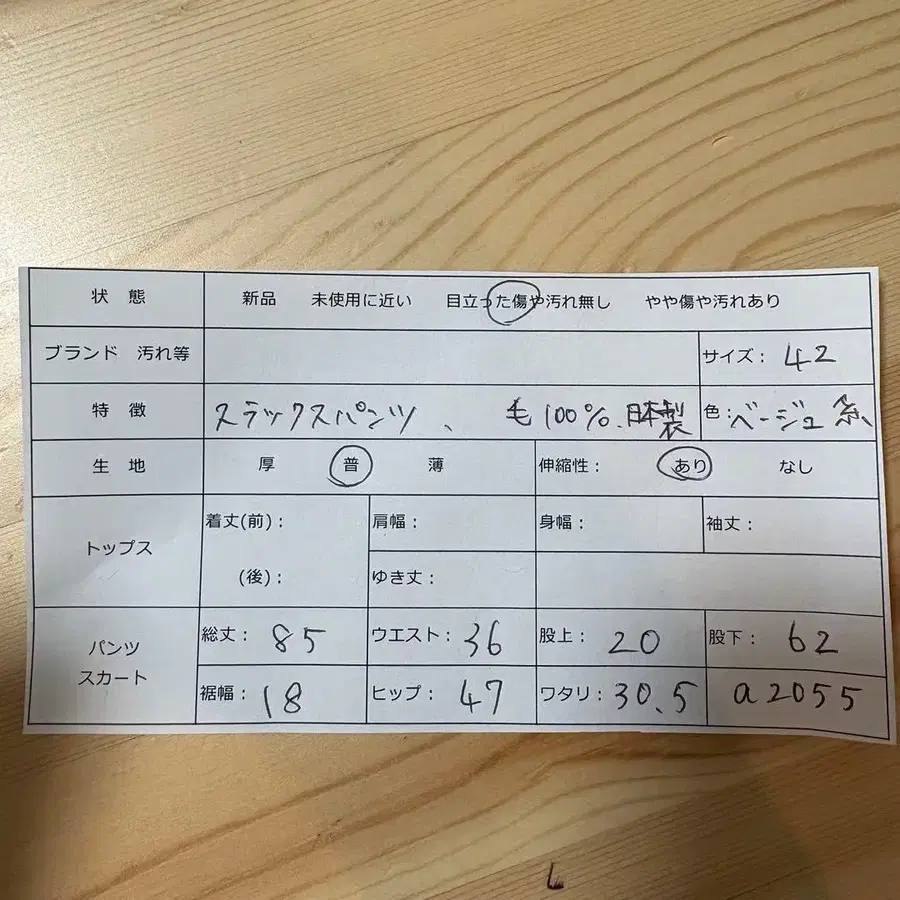 状 態 新品 未使用に近い 目立った傷や汚れ無し やや傷や汚れあり
ブランド 汚れ等 サイズ: 42
特 徴 スラックスパンツ、 毛100%、日本製 色: ベージュ系、
生 地 厚 普 薄 伸縮性: あり なし
トップス 着丈(前): 肩幅: 身幅: 袖丈:
(後): ゆき丈:
パンツ スカート 総丈: 85 ウエスト: 36 股上: 20 股下: 62
裾幅: 18 ヒップ: 47 ワタリ: 30.5 a2055